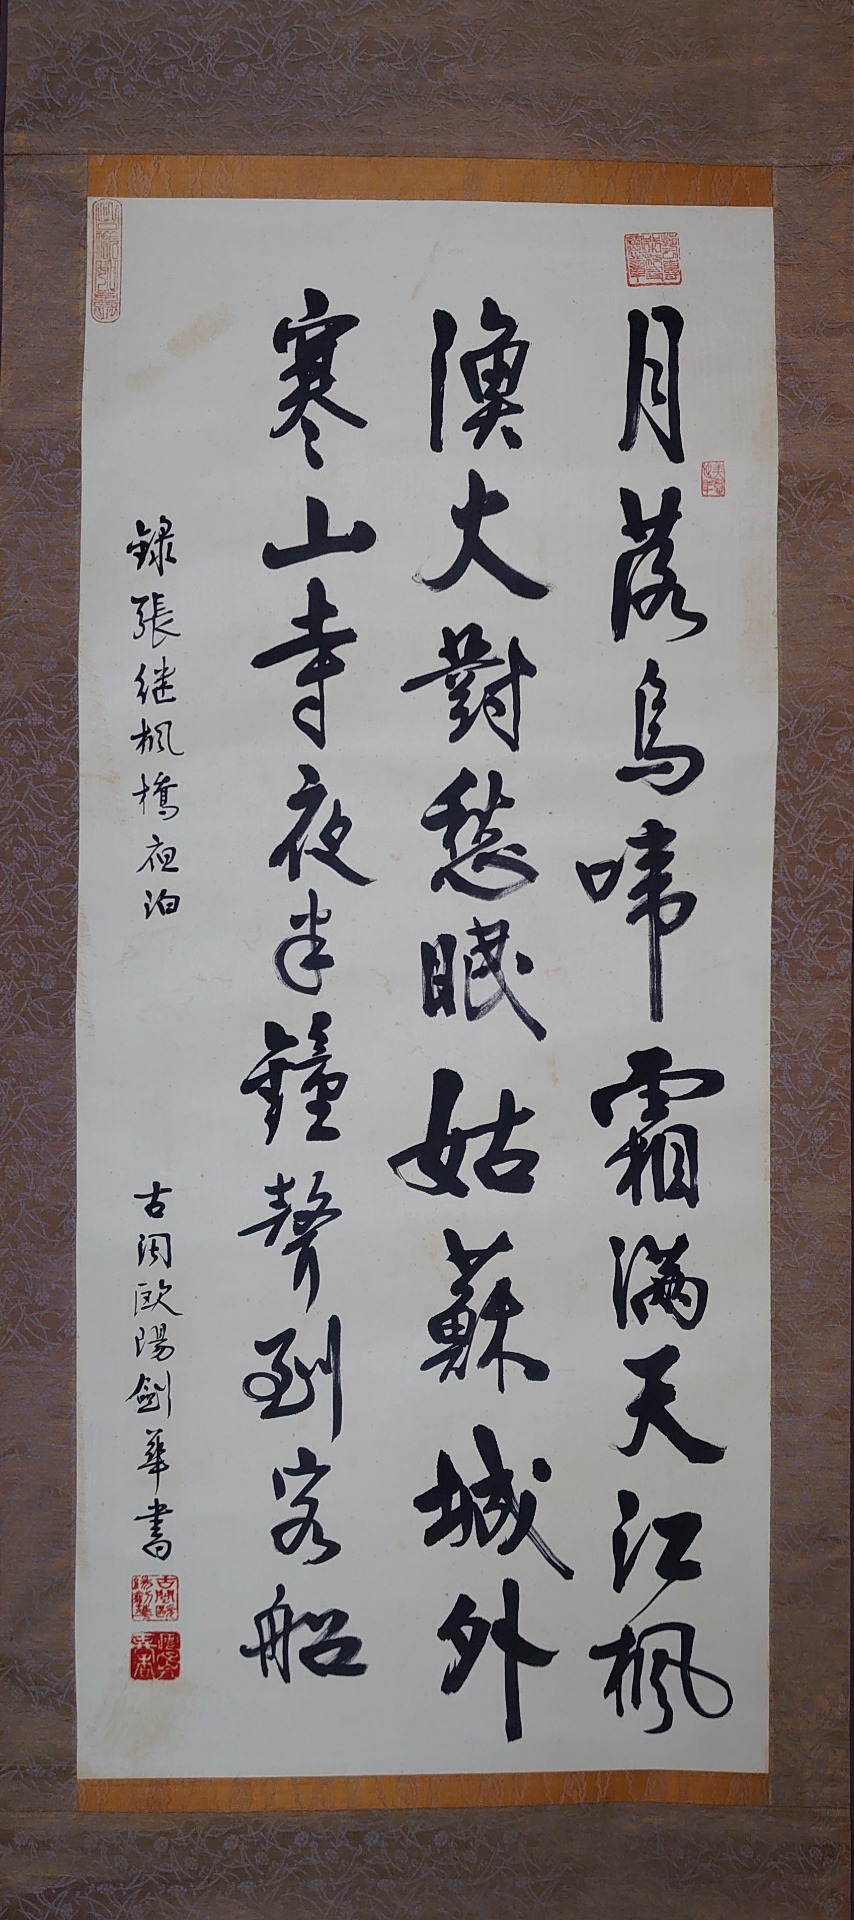 月落烏啼霜满天江楓
漁火對愁眠姑蘇城外
寒山寺夜半鐘聲到客船
録張继楓橋夜泊
古閩歐陽劍華書